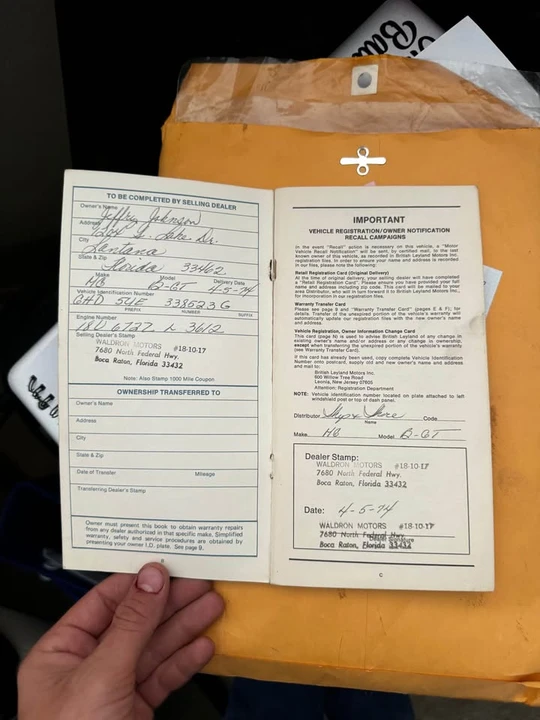 TO BE COMPLETED BY SELLING DEALER
Owner's Name
Jeffry Johnson
Address
Lake Dr.
City
Lantana
State & Zip
Florida 33462
Make Model Delivery Date
MG B-GT 4-5-74
Vehicle Identification Number
GHD 5UE 338523 G
PREFIX NUMBER SUFFIX
Engine Number
18V 672Z L 3612
Selling Dealer's Stamp
WALDRON MOTORS #18-10-17
7680 North Federal Hwy.
Boca Raton, Florida 33432
Note: Also Stamp 1000 Mile Coupon
OWNERSHIP TRANSFERRED TO
Owner's Name
Address
City
State & Zip
Date of Transfer Mileage
Transferring Dealer's Stamp
Owner must present this book to obtain warranty repairs
from any dealer authorized in that specific make. Simplified
warranty, safety and service procedures are obtained by
presenting your owner I.D. plate. See page 9.
B
IMPORTANT
VEHICLE REGISTRATION/OWNER NOTIFICATION
RECALL CAMPAIGNS
In the event "Recall" action is necessary on this vehicle, a "Motor
Vehicle Recall Notification" will be sent, by certified mail, to the last
known owner of this vehicle, as recorded in British Leyland Motors Inc.
registration files. In order to ensure your name and address is recorded
in our files, please note the following:
Retail Registration Card (Original Delivery)
At the time of original delivery, your selling dealer will have completed
a "Retail Registration Card". Please ensure you have provided your full
name and address including zip code. This card will be mailed to your
area Distributor, who will in turn forward it to British Leyland Motors Inc.
for incorporation in our registration files.
Warranty Transfer Card
Please see page 9 and "Warranty Transfer Card" (pages E & F); for
details. Transfer of the unexpired portion of the vehicle's warranty will
automatically update our registration files with the new owner's name
and address.
Vehicle Registration, Owner Information Change Card
This card (page N) is used to advise British Leyland of any change in
existing owner's name and/or address or any change in ownership,
except when transferring the unexpired portion of the vehicle's warranty
(see Warranty Transfer Card).
If this card has already been used, copy complete Vehicle Identification
Number onto postcard, supply old and new owner's name and address
and mail to:
British Leyland Motors Inc.
600 Willow Tree Road
Leonia, New Jersey 07605
Attention: Registration Department
NOTE: Vehicle identification number located on plate attached to left
windshield post or top of dash panel.
Distributor Code
Name
Make MG Model B-GT
Dealer Stamp:
WALDRON MOTORS #18-10-17
7680 North Federal Hwy.
Boca Raton, Florida 33432
Date: 4-5-74
WALDRON MOTORS #18-10-17
7680 North Federal Hwy.
Dealer Signature
Boca Raton, Florida 33432
C